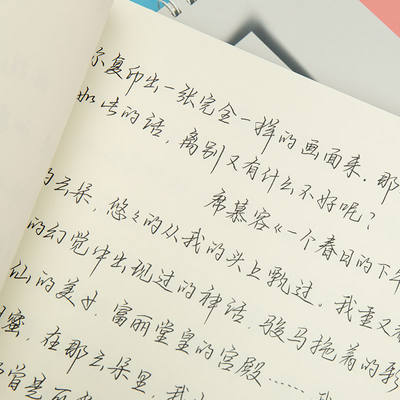 尔复印出一张完全一样的画面来.那
如此的话，离别又有什么不好呢？
席慕容《一个春日的下午
的云朵，悠々的从我的头上飘过.我重又看
的幻觉中出现过的神话.骏马拖着的
仙的美女.富丽堂皇的宫殿……
蜜.在那云朵里，我
曾是